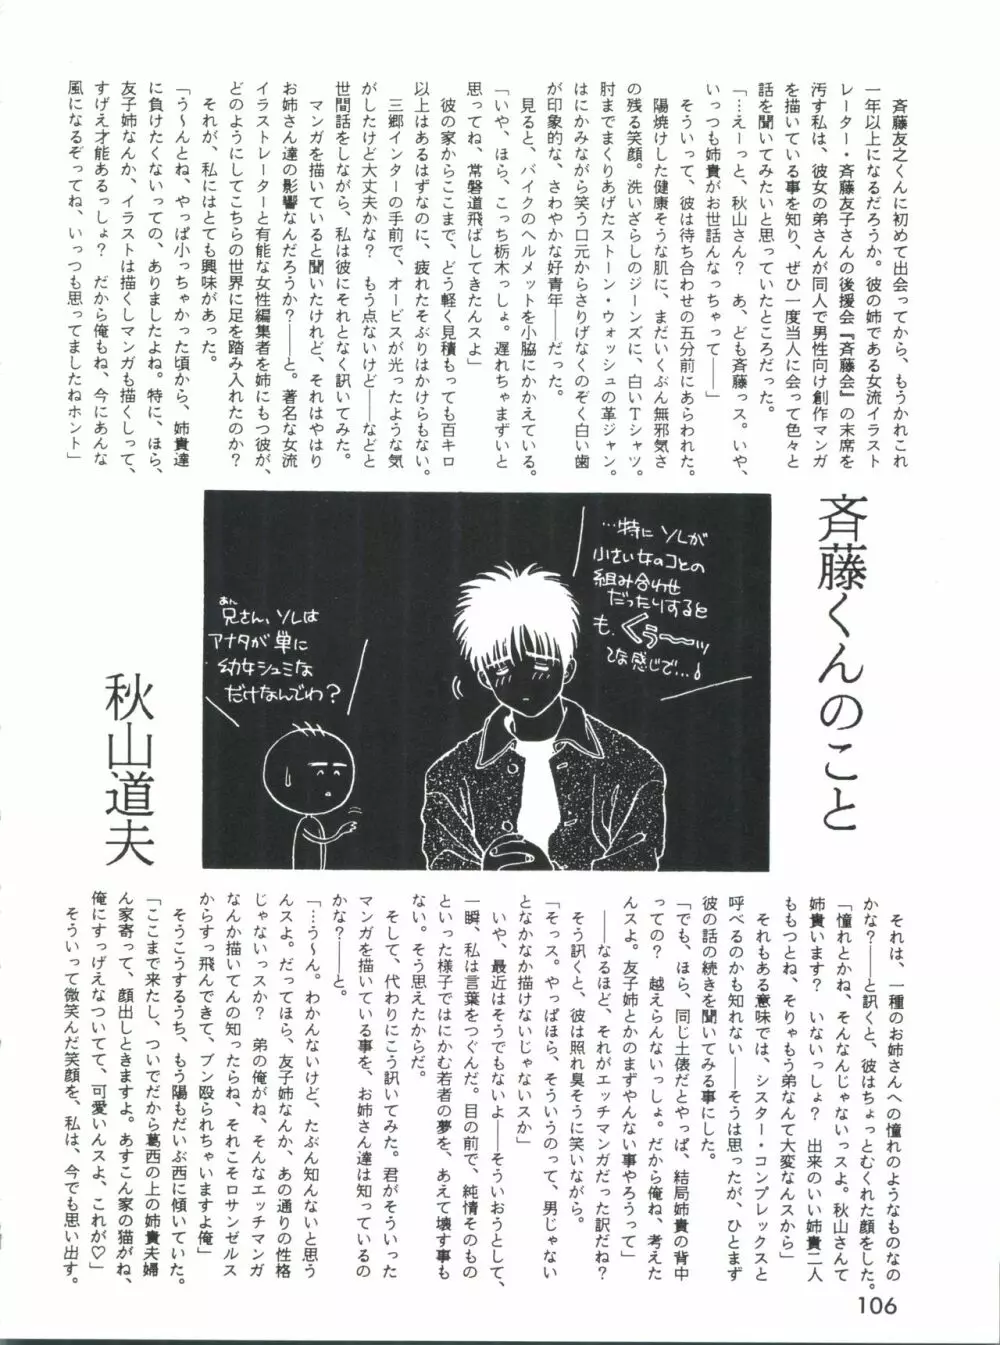 斉藤くんのこと
秋山道夫
　斉藤友之くんに初めて出会ってから、もうかれこれ
一年以上になるだろうか。彼の姉である女流イラスト
レーター・斉藤友子さんの後援会『斉藤会』の末席を
汚す私は、彼女の弟さんが同人で男性向け創作マンガ
を描いている事を知り、ぜひ一度当人に会って色々と
話を聞いてみたいと思っていたところだった。
「…えーっと、秋山さん？　あ、ども斉藤っス。いや、
いっつも姉貴がお世話んなっちゃって――」
　そういって、彼は待ち合わせの五分前にあらわれた。
　陽焼けした健康そうな肌に、まだいくぶん無邪気さ
の残る笑顔。洗いざらしのジーンズに、白いTシャツ。
肘までまくりあげたストーン・ウォッシュの革ジャン。
はにかみながら笑う口元からさりげなくのぞく白い歯
が印象的な、さわやかな好青年――だった。
　見ると、バイクのヘルメットを小脇にかかえている。
「いや、ほら、こっち栃木っしょ。遅れちゃまずいと
思ってね、常磐道飛ばしてきたんスよ」
　彼の家からここまで、どう軽く見積もっても百キロ
以上はあるはずなのに、疲れたそぶりはかけらもない。
　三郷インターの手前で、オービスが光ったような気
がしたけど大丈夫かな？　もう点ないけど――などと
世間話をしながら、私は彼にそれとなく訊いてみた。
　マンガを描いていると聞いたけれど、それはやはり
お姉さん達の影響なんだろうか？――と。著名な女流
イラストレーターと有能な女性編集者を姉にもつ彼が、
どのようにしてこちらの世界に足を踏み入れたのか？
　それが、私にはとても興味があった。
「う～んとね、やっぱ小っちゃかった頃から、姉貴達
に負けたくないっての、ありましたよね。特に、ほら、
友子姉なんか、イラストは描くしマンガも描くしって、
すげえ才能あるっしょ？　だから俺もね、今にあんな
風になるぞってね、いっつも思ってましたねホント」
…特にソレが
小さい女のコとの
組み合わせ
だったりすると
も、くぅーーッ
てな感じで…！
あん
兄さん、ソレは
アナタが単に
幼女シュミな
だけなんでわ？
　それは、一種のお姉さんへの憧れのようなものなの
かな？――と訊くと、彼はちょっとむくれた顔をした。
「憧れとかね、そんなんじゃないっスよ。秋山さんて
姉貴います？　いないっしょ？　出来のいい姉貴二人
ももつとね、そりゃもう弟なんて大変なんスから」
　それもある意味では、シスター・コンプレックスと
呼べるのかも知れない――そうは思ったが、ひとまず
彼の話の続きを聞いてみる事にした。
「でも、ほら、同じ土俵だとやっぱ、結局姉貴の背中
っての？　越えらんないっしょ。だから俺ね、考えた
んスよ。友子姉とかのまずやんない事やろうって」
――なるほど、それがエッチマンガだった訳だね？
　そう訊くと、彼は照れ臭そうに笑いながら。
「そっス。やっぱほら、そういうのって、男じゃない
となかなか描けないじゃないスか」
　いや、最近はそうでもないよ――そういおうとして、
一瞬、私は言葉をつぐんだ。目の前で、純情そのもの
といった様子ではにかむ若者の夢を、あえて壊す事も
ない。そう思えたからだ。
　そして、代わりにこう訊いてみた。君がそういった
マンガを描いている事を、お姉さん達は知っているの
かな？――と。
「…う～ん。わかんないけど、たぶん知んないと思う
んスよ。だってほら、友子姉なんか、あの通りの性格
じゃないっスか？　弟の俺がね、そんなエッチマンガ
なんか描いてんの知ったらね、それこそロサンゼルス
からすっ飛んできて、ブン殴られちゃいますよ俺」
　そうこうするうち、もう陽もだいぶ西に傾いていた。
「ここまで来たし、ついでだから葛西の上の姉貴夫婦
ん家寄って、顔出しときますよ。あすこん家の猫がね、
俺にすっげえなついてて、可愛いんスよ、これが♡」
　そういって微笑んだ笑顔を、私は、今でも思い出す。
106